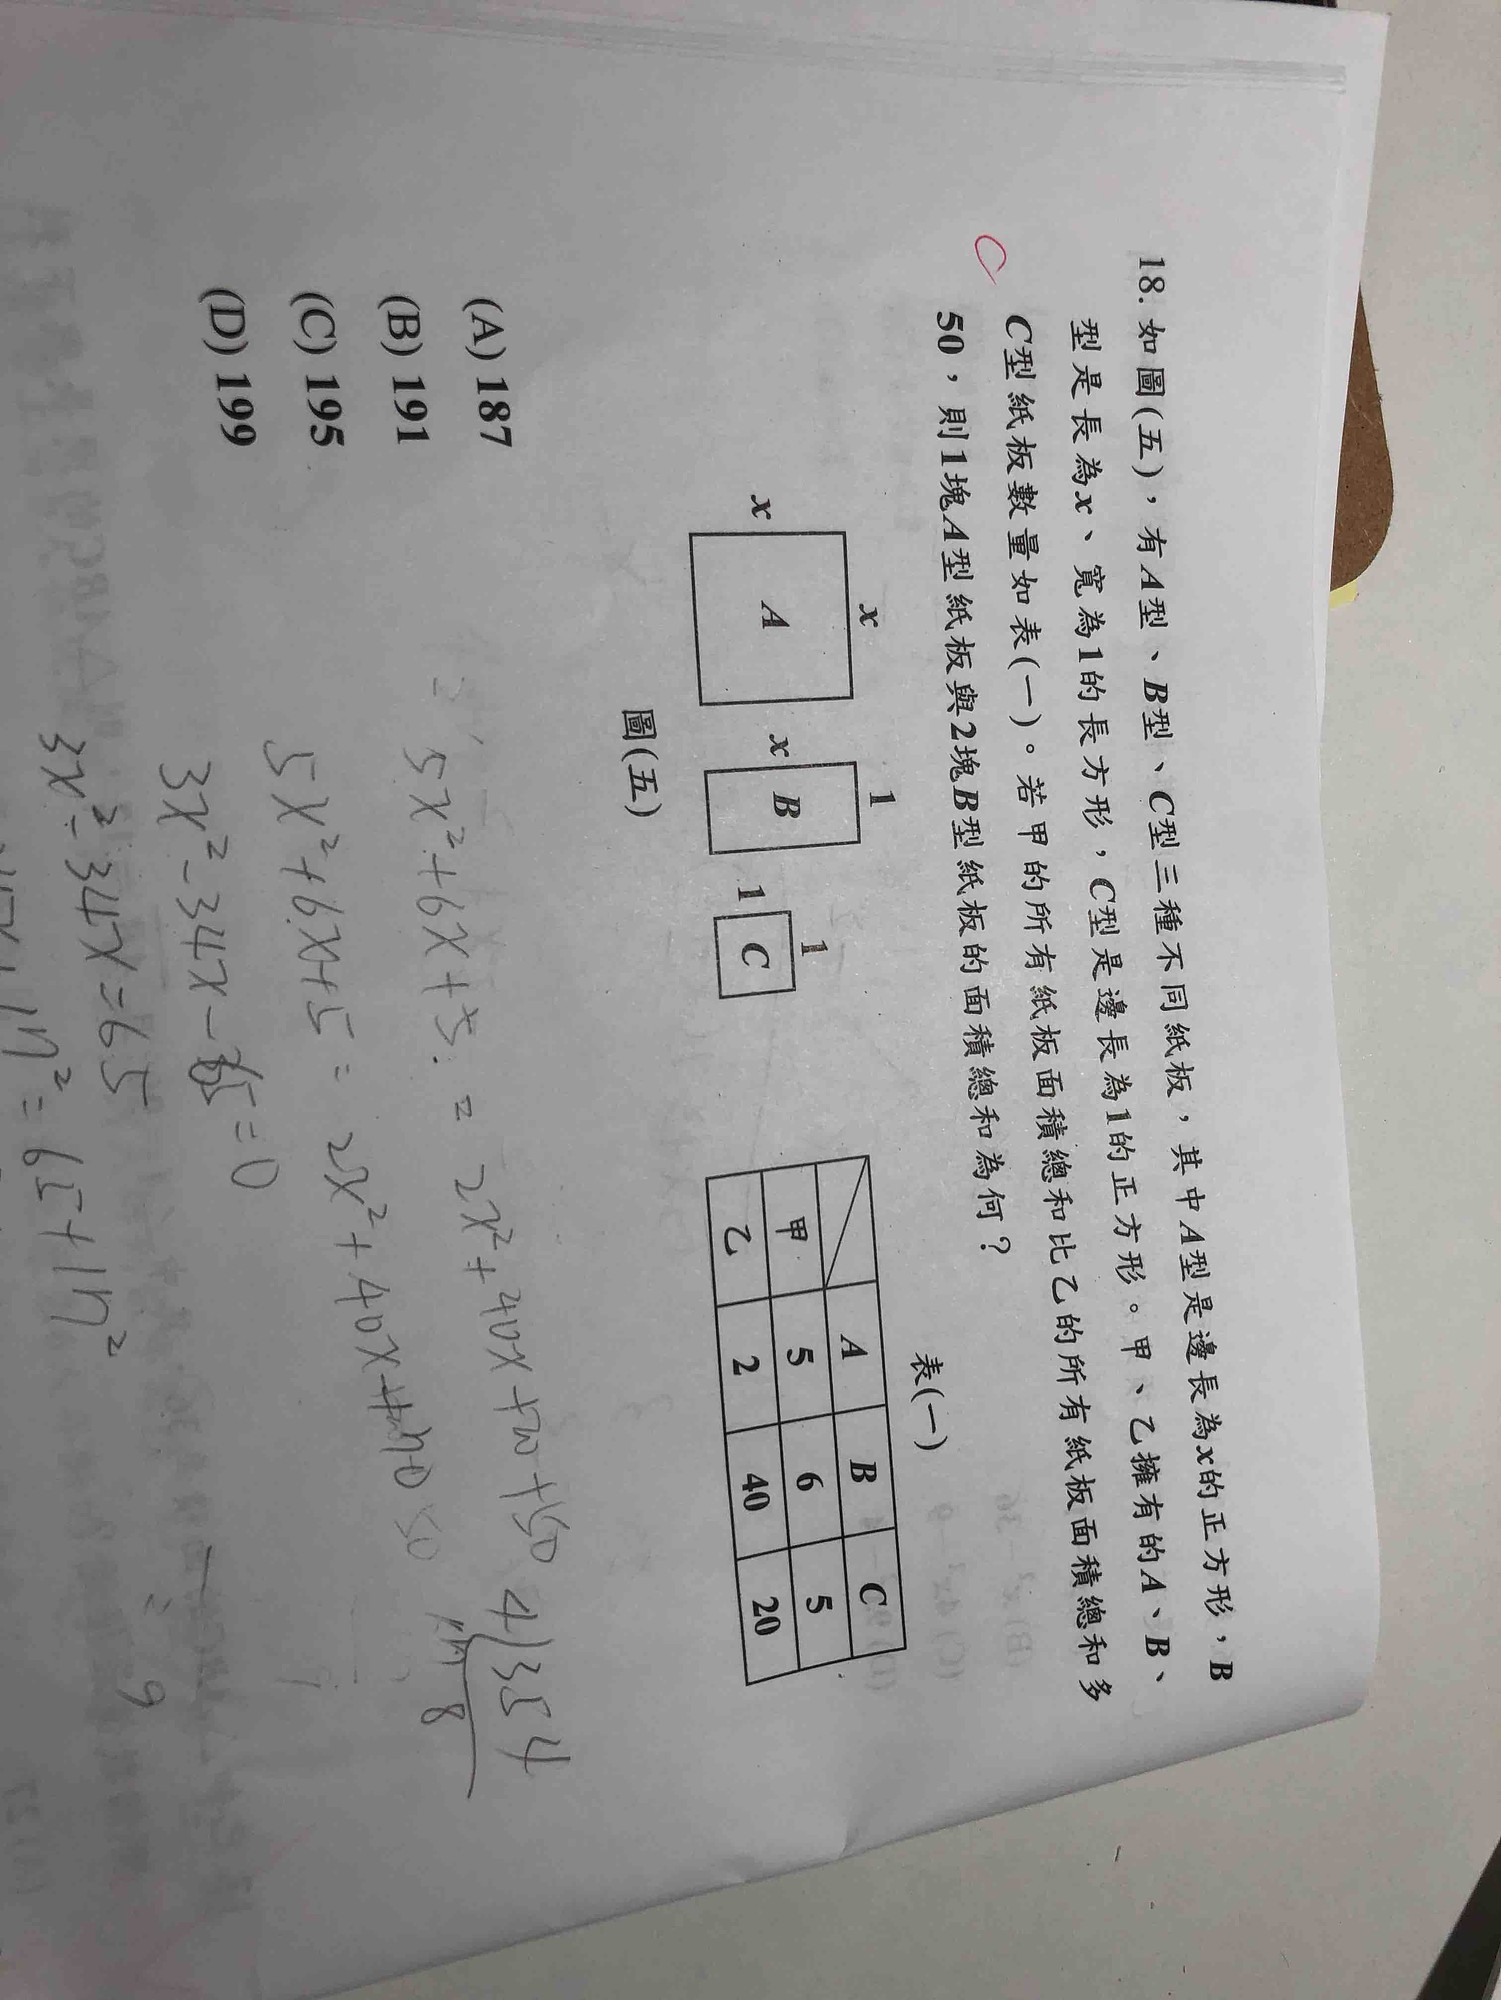 18. 如圖(五)，有A型、B型、C型三種不同紙板，其中A型是邊長為x的正方形，B
型是長為x、寬為1的長方形，C型是邊長為1的正方形。甲、乙擁有的A、B、
C型紙板數量如表(一)。若甲的所有紙板面積總和比乙的所有紙板面積總和多
50，則1塊A型紙板與2塊B型紙板的面積總和為何？
C
x
x
A
1
x
B
1
1
C
圖(五)
表(一)
A B C
甲 5 6 5
乙 2 40 20
(A) 187
(B) 191
(C) 195
(D) 199
5x²+6x+5 = 2x²+40x+20+50
5x²+6x+5 = 2x²+40x+
3x²-34x-65=0
3x²-34x=65
=65+17²
4)354
8